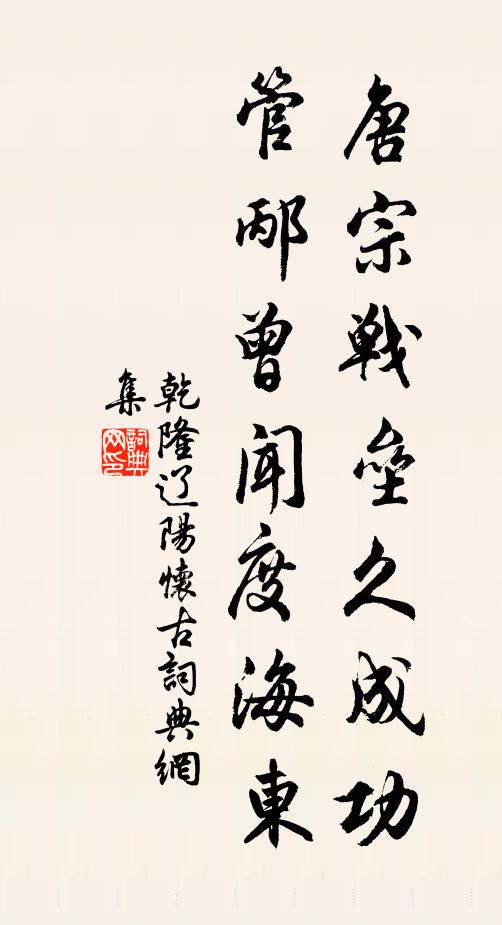 唐宗戦壘久成功
管邴曾闻度海東
乾隆辽陽懷古詞典網
集
詞典
网印